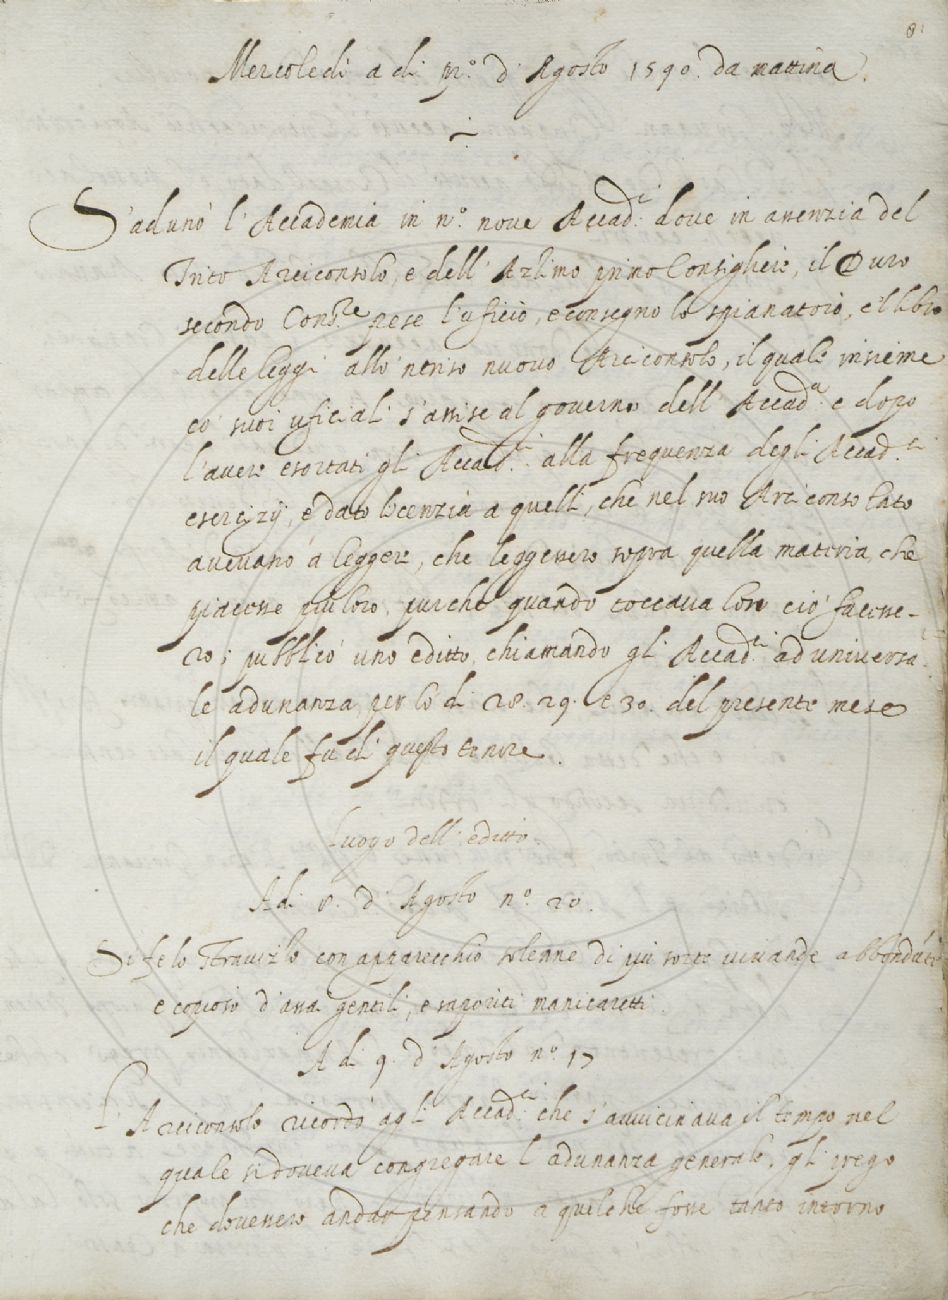 8
Mercoledi a di p.º d' Agosto 1590. da mattina.
S'adunò l' Accademia in nº. nove Accad.ci dove in assenzia del
Trito Arciconsolo, e dell' primo Consigliere, il Duro
secondo Cons.re rese l'uficio, e consegnò lo spianatoio, e'l libro
delle leggi allo 'nteriso nuovo Arciconsolo, il quale insieme
co' suoi uficiali s'assise al governo dell' Accad.a e dopo
l'avere esortati gli Accad.ci alla frequenza degli Accad.ci
esercizij, e dato licenzia a quelli, che nel suo Arciconsolato
avevano a leggere, che leggessero sopra quella materia, che
piacesse più loro, purchè quando toccava loro ciò facesse-
ro; pubblicò uno editto, chiamando gli Accad.ci ad universa-
le adunanza, per lo dì 28. 29. e 30. del presente mese
il quale fu di questo tenore.
Luogo dell' editto
A di 8. d' Agosto nº. 20.
Si fe lo Stravizzo con apparecchio solenne di più sorte vivande abbondāte
e copioso d'assai gentili, e saporiti manicaretti.
A di 9. d' Agosto nº. 17
L' Arciconsolo ricordò agli Accad.ci che s'avvicinava il tempo nel
quale si doveva congregare l' adunanza generale, gli pregò
che dovessero andar pensando a quel che fosse tanto intorno